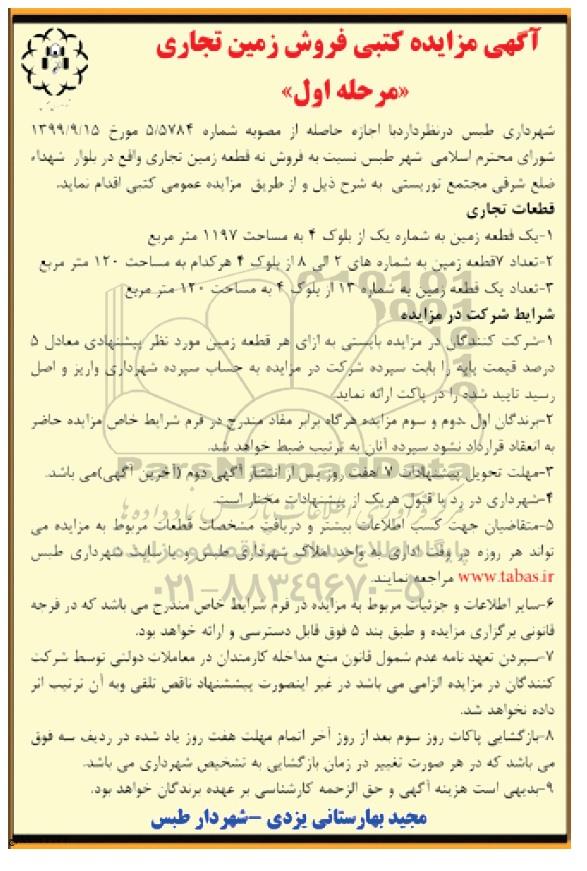 آگهی مزایده کتبی فروش زمین تجاری
«مرحله اول»
شهرداری طبس درنظرداردبا اجازه حاصله از مصوبه شماره ۵/۵۷۸۴ مورخ ۱۳۹۹/۹/۱۵
شورای محترم اسلامی شهر طبس نسبت به فروش نه قطعه زمین تجاری واقع در بلوار شهداء
ضلع شرقی مجتمع توریستی به شرح ذیل و از طریق مزایده عمومی کتبی اقدام نماید.
قطعات تجاری
۱-یک قطعه زمین به شماره یک از بلوک ۴ به مساحت ۱۱۹۷ متر مربع
۲-تعداد ۷قطعه زمین به شماره های ۲ الی ۸ از بلوک ۴ هرکدام به مساحت ۱۲۰ متر مربع
۳-تعداد یک قطعه زمین به شماره ۱۳ از بلوک ۴ به مساحت ۱۲۰ متر مربع
شرایط شرکت در مزایده
۱-شرکت کنندگان در مزایده بایستی به ازای هر قطعه زمین مورد نظر پیشنهادی معادل ۵
درصد قیمت پایه را بابت سپرده شرکت در مزایده به حساب سپرده شهرداری واریز و اصل
رسید تایید شده را در پاکت ارائه نماید.
۲-برندگان اول ،دوم و سوم مزایده هرگاه برابر مفاد مندرج در فرم شرایط خاص مزایده حاضر
به انعقاد قرارداد نشود سپرده آنان به ترتیب ضبط خواهد شد.
۳-مهلت تحویل پیشنهادات ۷ هفت روز پس از انتشار آگهی دوم (آخرین آگهی)می باشد.
۴-شهرداری در رد یا قبول هریک از پیشنهادات مختار است.
۵-متقاضیان جهت کسب اطلاعات بیشتر و دریافت مشخصات قطعات مربوط به مزایده می
تواند هر روزه در وقت اداری به واحد املاک شهرداری طبس و یا سایت شهرداری طبس
www.tabas.ir مراجعه نمایند.
۶-سایر اطلاعات و جزئیات مربوط به مزایده در فرم شرایط خاص مندرج می باشد که در فرجه
قانونی برگزاری مزایده و طبق بند ۵ فوق قابل دسترسی و ارائه خواهد بود.
۷-سپردن تعهد نامه عدم شمول قانون منع مداخله کارمندان در معاملات دولتی توسط شرکت
کنندگان در مزایده الزامی می باشد در غیر اینصورت پیششنهاد ناقص تلقی وبه آن ترتیب اثر
داده نخواهد شد.
۸-بازگشایی پاکات روز سوم بعد از روز آخر اتمام مهلت هفت روز یاد شده در ردیف سه فوق
می باشد که در هر صورت تغییر در زمان بازگشایی به تشخیص شهرداری می باشد.
۹-بدیهی است هزینه آگهی و حق الزحمه کارشناسی بر عهده برندگان خواهد بود.
مجید بهارستانی یزدی -شهردار طبس
ParsNamadData
۰۲۱-۸۸۳۴۹۶۷۰-۵